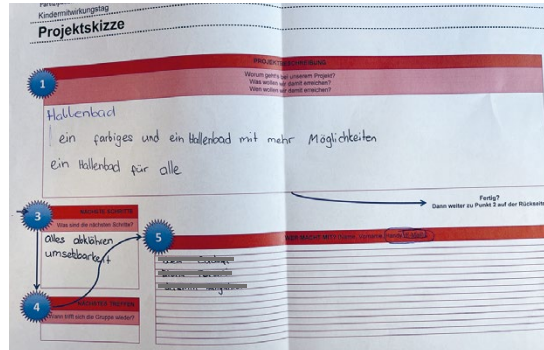 Kindermitwirkungstag
Projektskizze
1
PROJEKTBESCHREIBUNG
Worum geht's bei unserem Projekt?
Was wollen wir damit erreichen?
Wen wollen wir damit erreichen?
Hallenbad
ein farbiges und ein Hallenbad mit mehr Möglichkeiten
ein Hallenbad für alle
Fertig?
Dann weiter zu Punkt 2 auf der Rückseite
3
NÄCHSTE SCHRITTE
Was sind die nächsten Schritte?
alles abklähren
umsetzbarkeit
4
NÄCHSTES TREFFEN
Wann trifft sich die Gruppe wieder?
5
WER MACHT MIT?